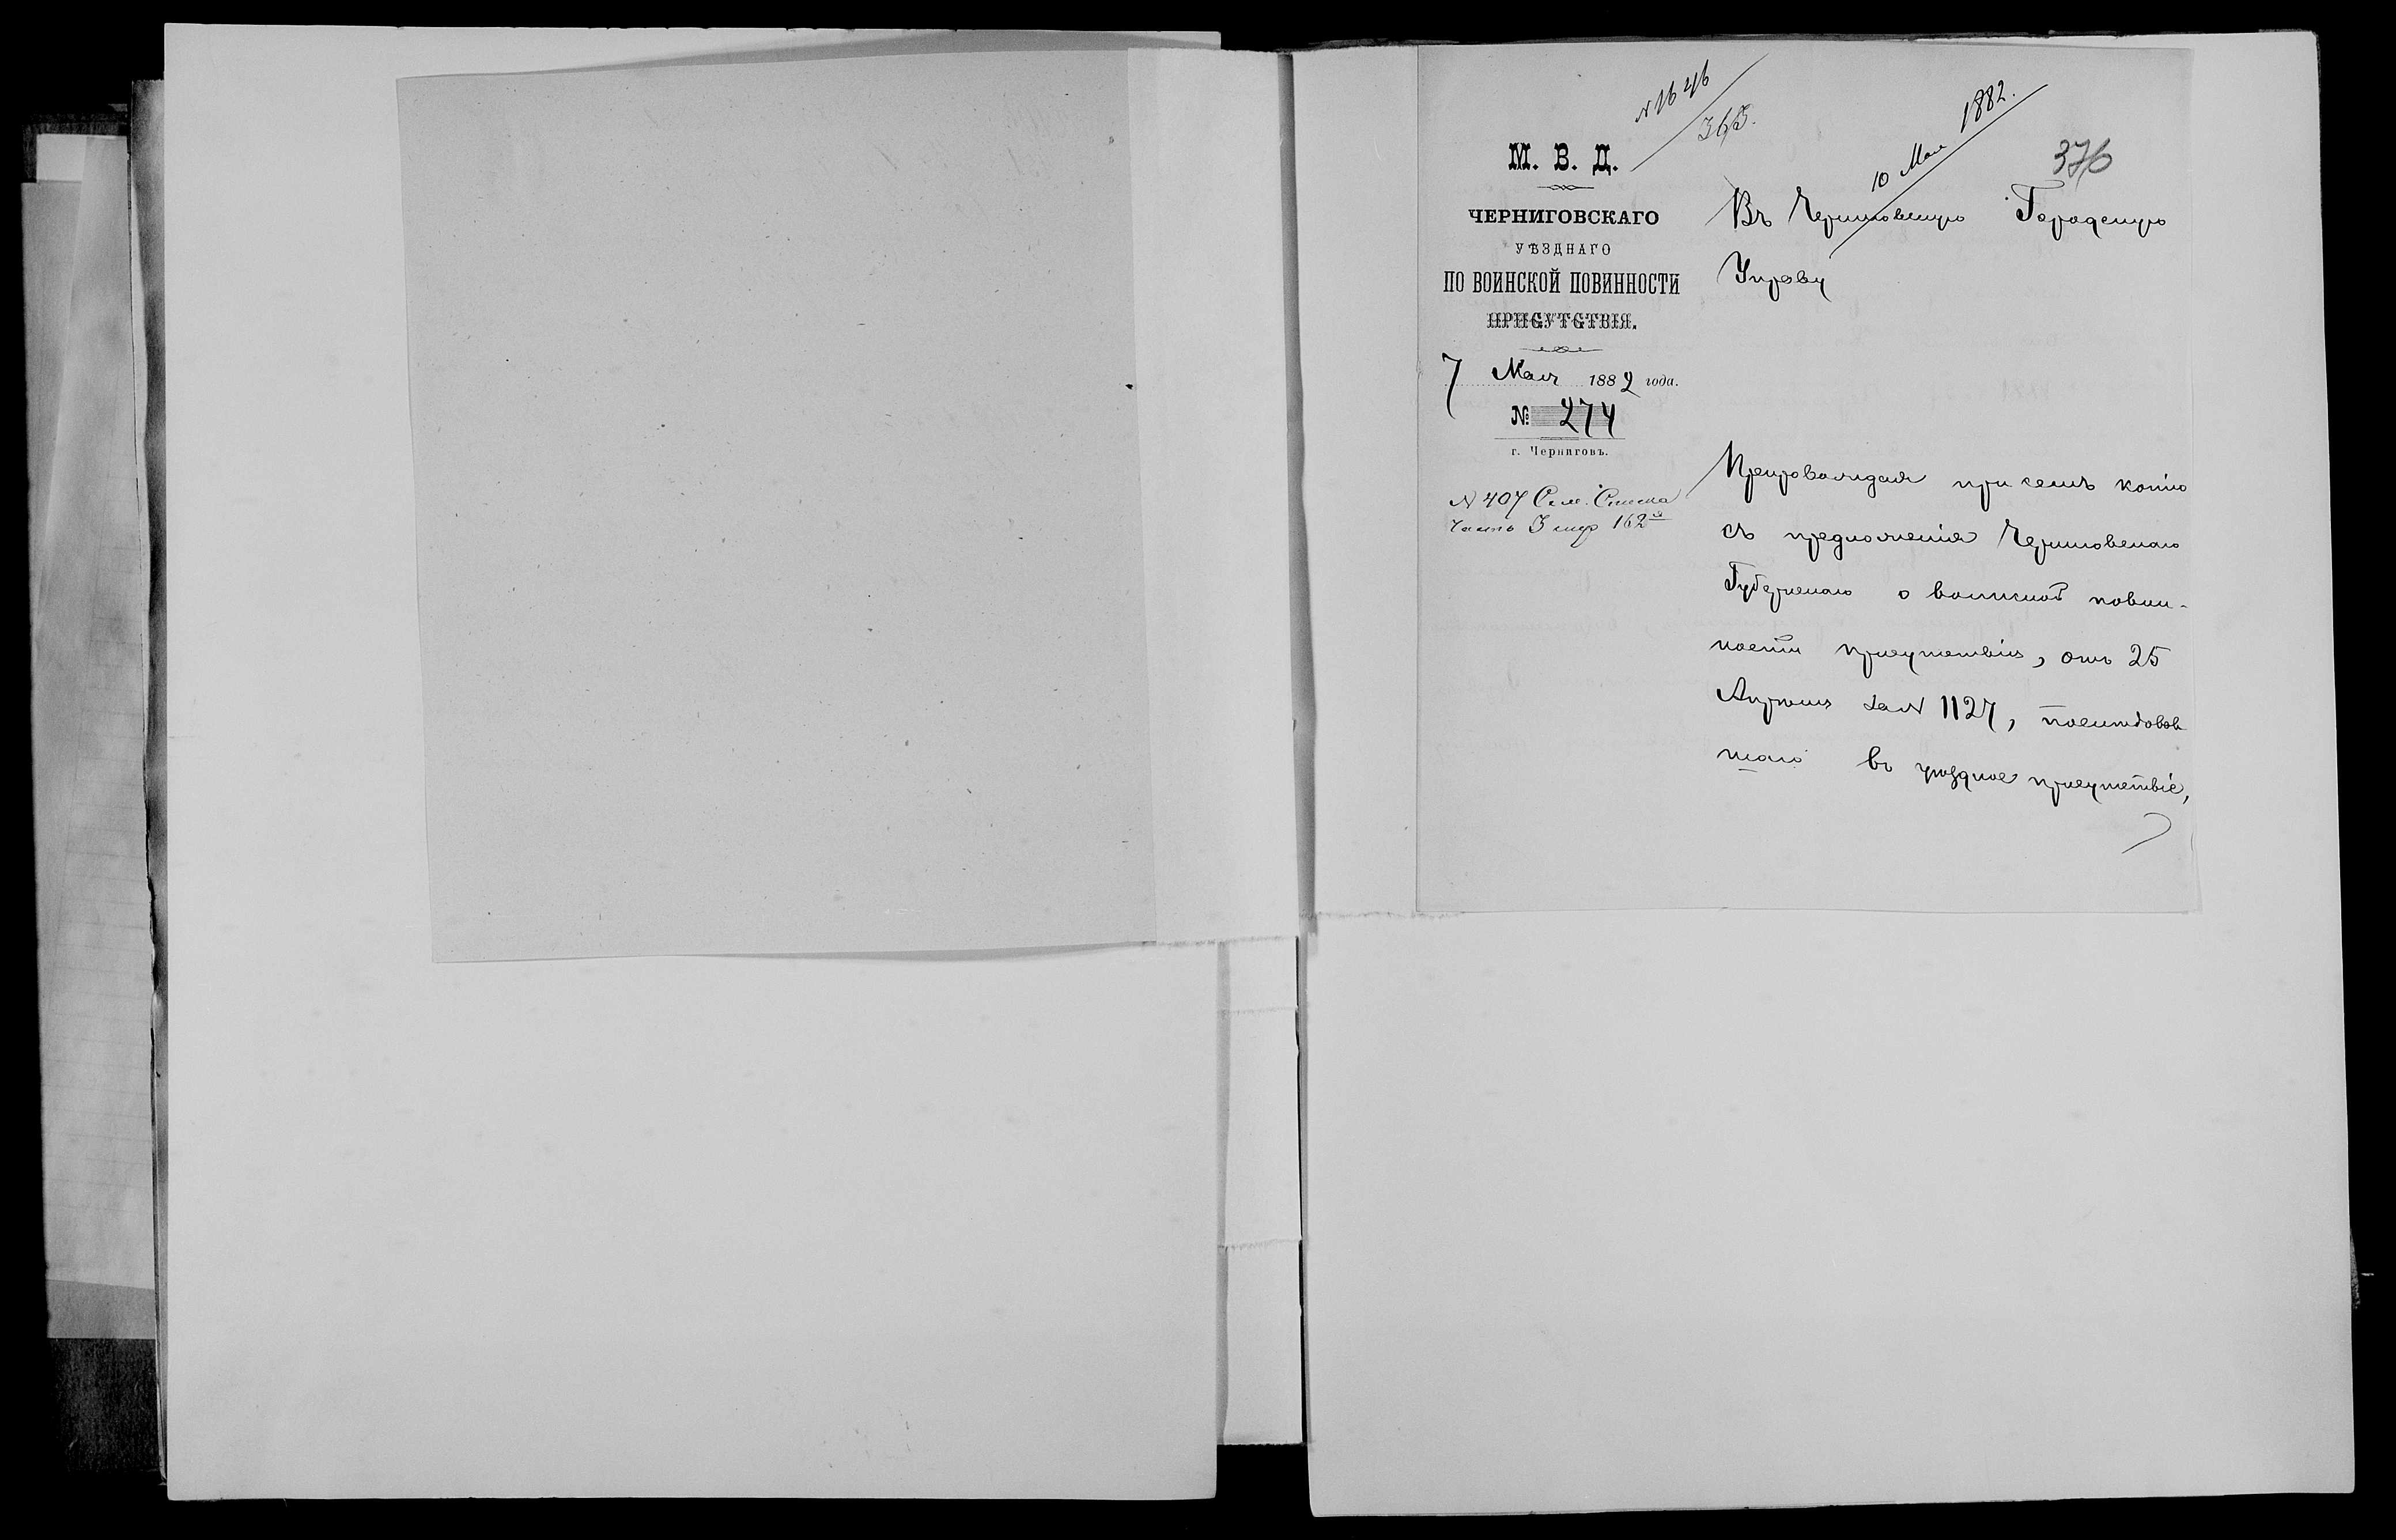 N 1646
365.
10 Мая 1882.
376
М. В. Д.
ЧЕРНИГОВСКАГО
УѢЗДНАГО
ПО ВОИНСКОЙ ПОВИННОСТИ
ПРИСУТСТВІЯ.
7 Мая 1882 года.
№ 274
г. Черниговъ.
N 407 Сем. Списка
Часть 3 уч 162
Въ Черниговскую Городскую
Управу
Препровождая при семъ копію
съ предложенія Черниговскаго
Губернскаго о воинской повин-
ности присутствія, отъ 25
Апрѣля за N 1127, послѣдовав
шаго въ уѣздное присутствіе,